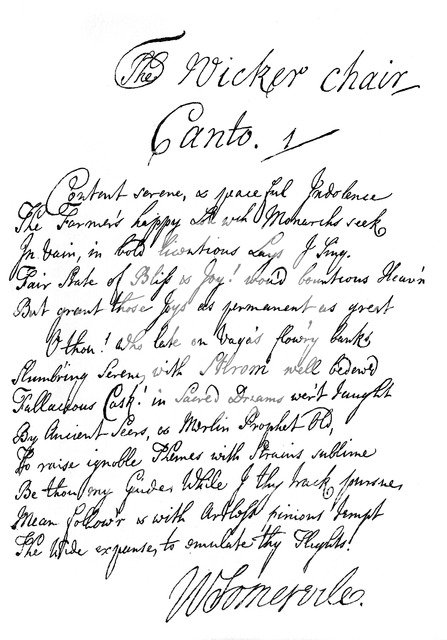 The Wicker chair
Canto. 1
Content serene, & peaceful Indolence
The Farmer's happy Lot wch Monarchs seek
In Vain, in bold licentious Lays I Sing.
Fair State of Bliss & Joy! wou'd bounteous Heav'n
But grant those Joys as permanent as great
O thou! who late on Vaga's flow'ry banks
Slumb'ring Serene, with Stirom well bedew'd
Fallacious Cask! in Sacred Dreams wer't taught
By Ancient Seers, & Merlin Prophet Old,
To raise ignoble Themes with Strains sublime
Be thou my Guide, While I thy track pursue,
Mean follow'r & with Artless pinions tempt
The Wide expanse, to emulate thy Flights.
WSomervile.